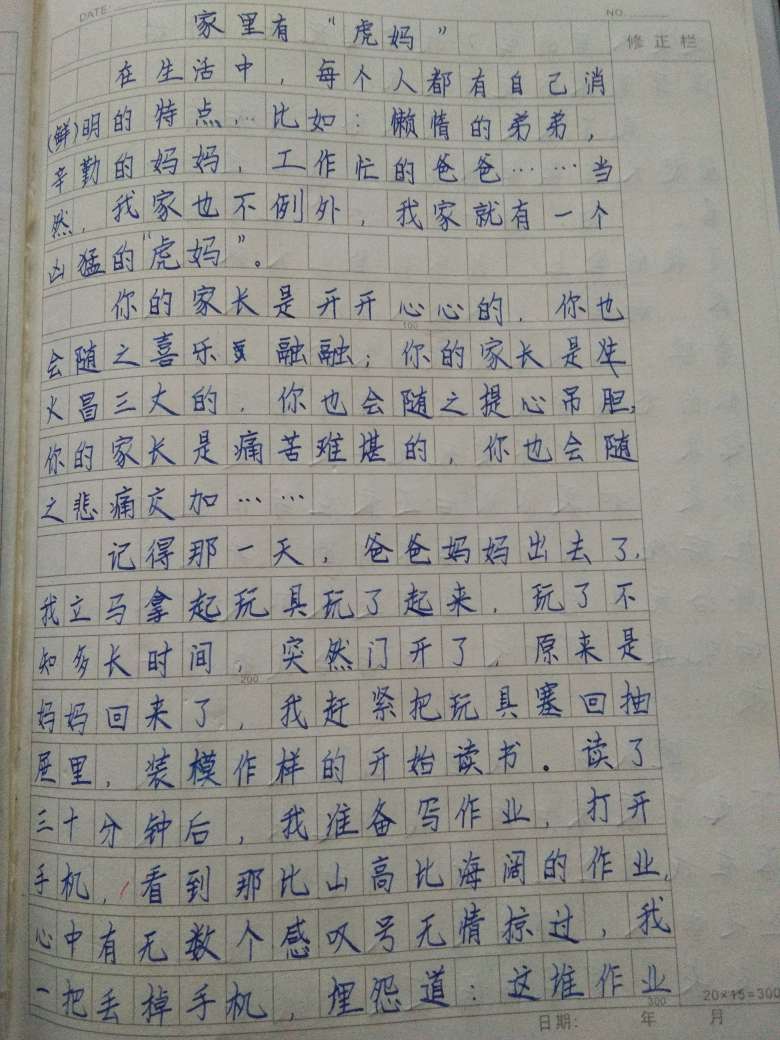 DATE
NO.
家里有“虎妈”
修正栏
在生活中，每个人都有自己消
(鲜)明的特点，比如：懒情的弟弟，
辛勤的妈妈，工作忙的爸爸……当
然，我家也不例外，我家就有一个
凶猛的“虎妈”。
你的家长是开开心心的，你也
100
会随之喜乐融融；你的家长是生
火冒三丈的，你也会随之提心吊胆；
你的家长是痛苦难堪的，你也会随
之悲痛交加……
记得那一天，爸爸妈妈出去了，
我立马拿起玩具玩了起来，玩了不
知多长时间，突然门开了，原来是
200
妈妈回来了，我赶紧把玩具塞回抽
屉里，装模作样的开始读书。读了
三十分钟后，我准备写作业，打开
手机，看到那比山高比海阔的作业，
心中有无数个感叹号无情掠过，我
一把丢掉手机，埋怨道：这堆作业
300
20×15=300
日期： 年 月